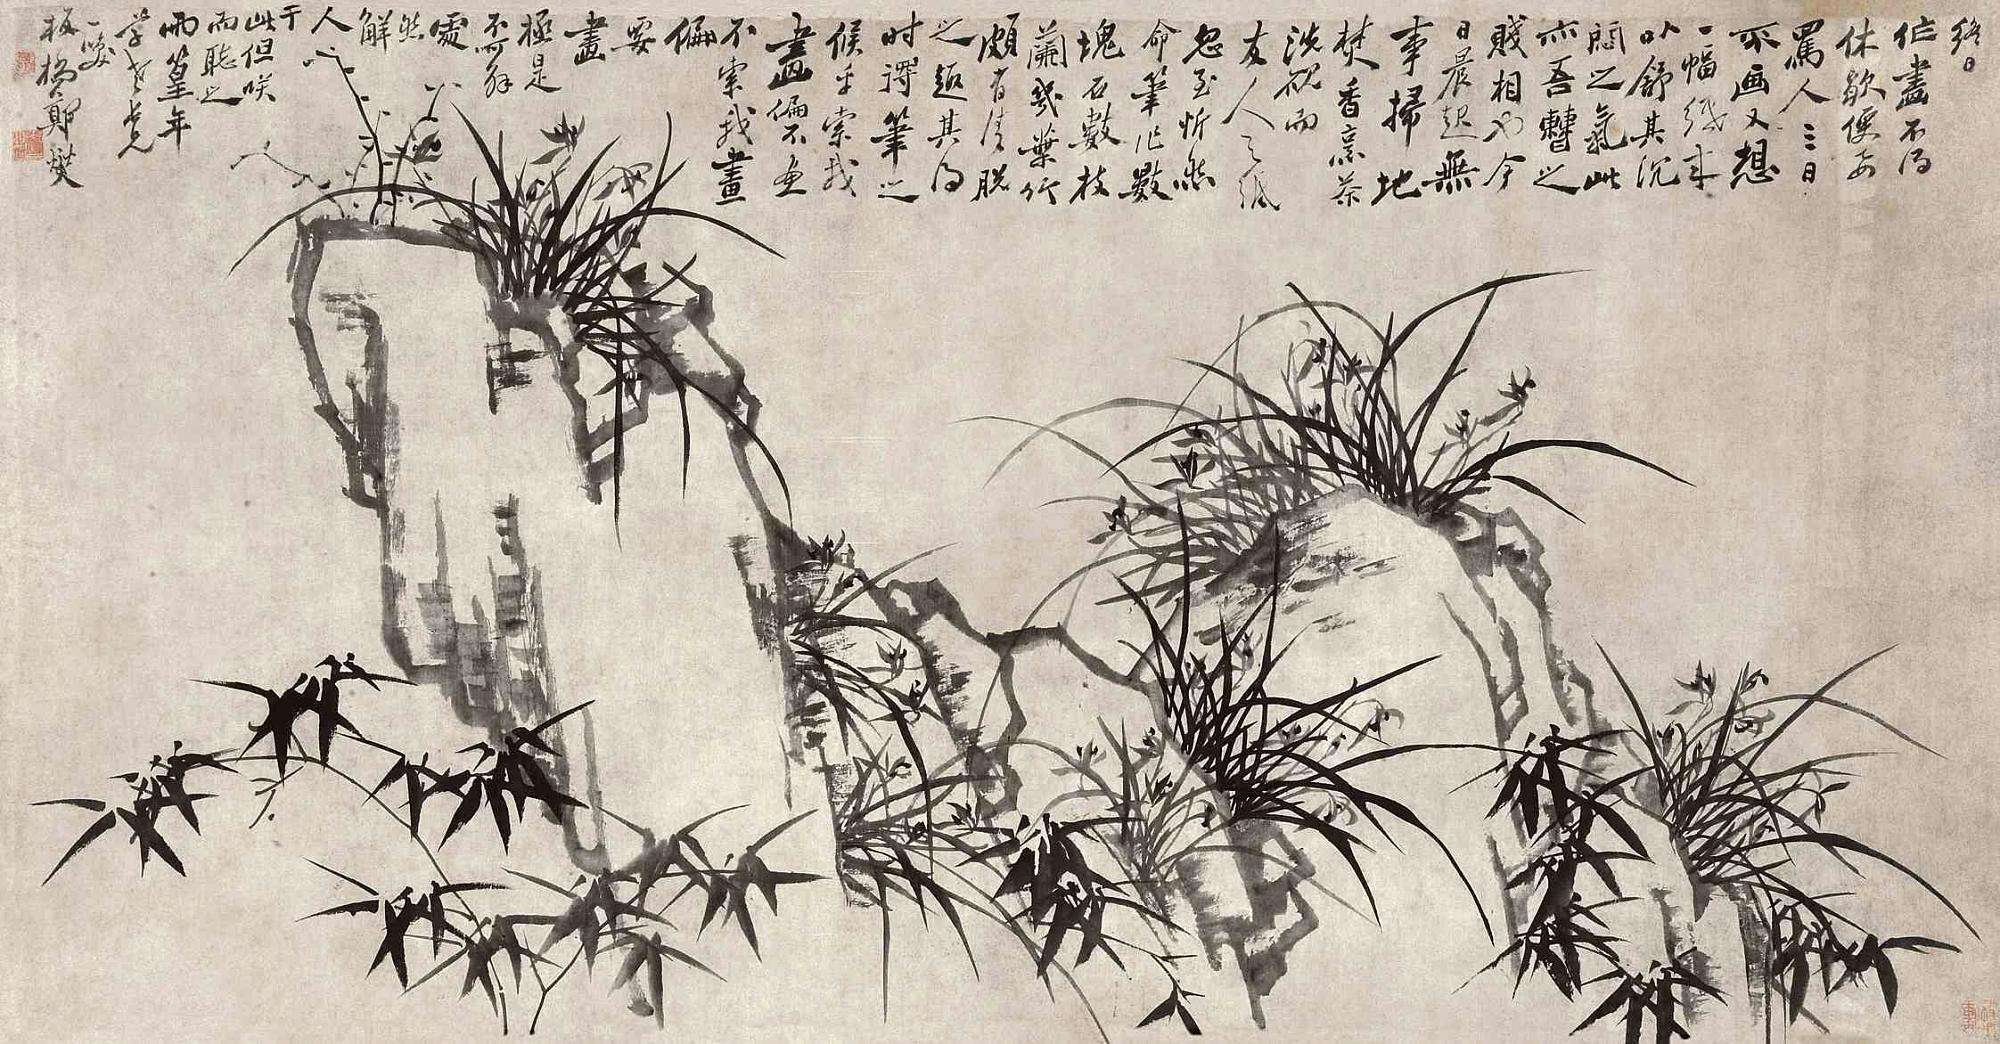 終日
作畫不得
休歇便要
罵人三日
不画又想
一幅紙來
以舒其沉
悶之氣此
亦吾輩之
賤相也今
日晨起無
事掃地
焚香烹茶
洗硯而
友人之紙
忽至忻然
命筆作數
塊石數枝
蘭幾葉竹
頗有清脫
之趣其得
时得筆之
候乎索我
畫偏不画
不索我畫
偏
要
畫
極是
不可解
處
然
解
人
于
此但咲
而聽之
雨篁年
學老兄
一咲
板橋鄭燮